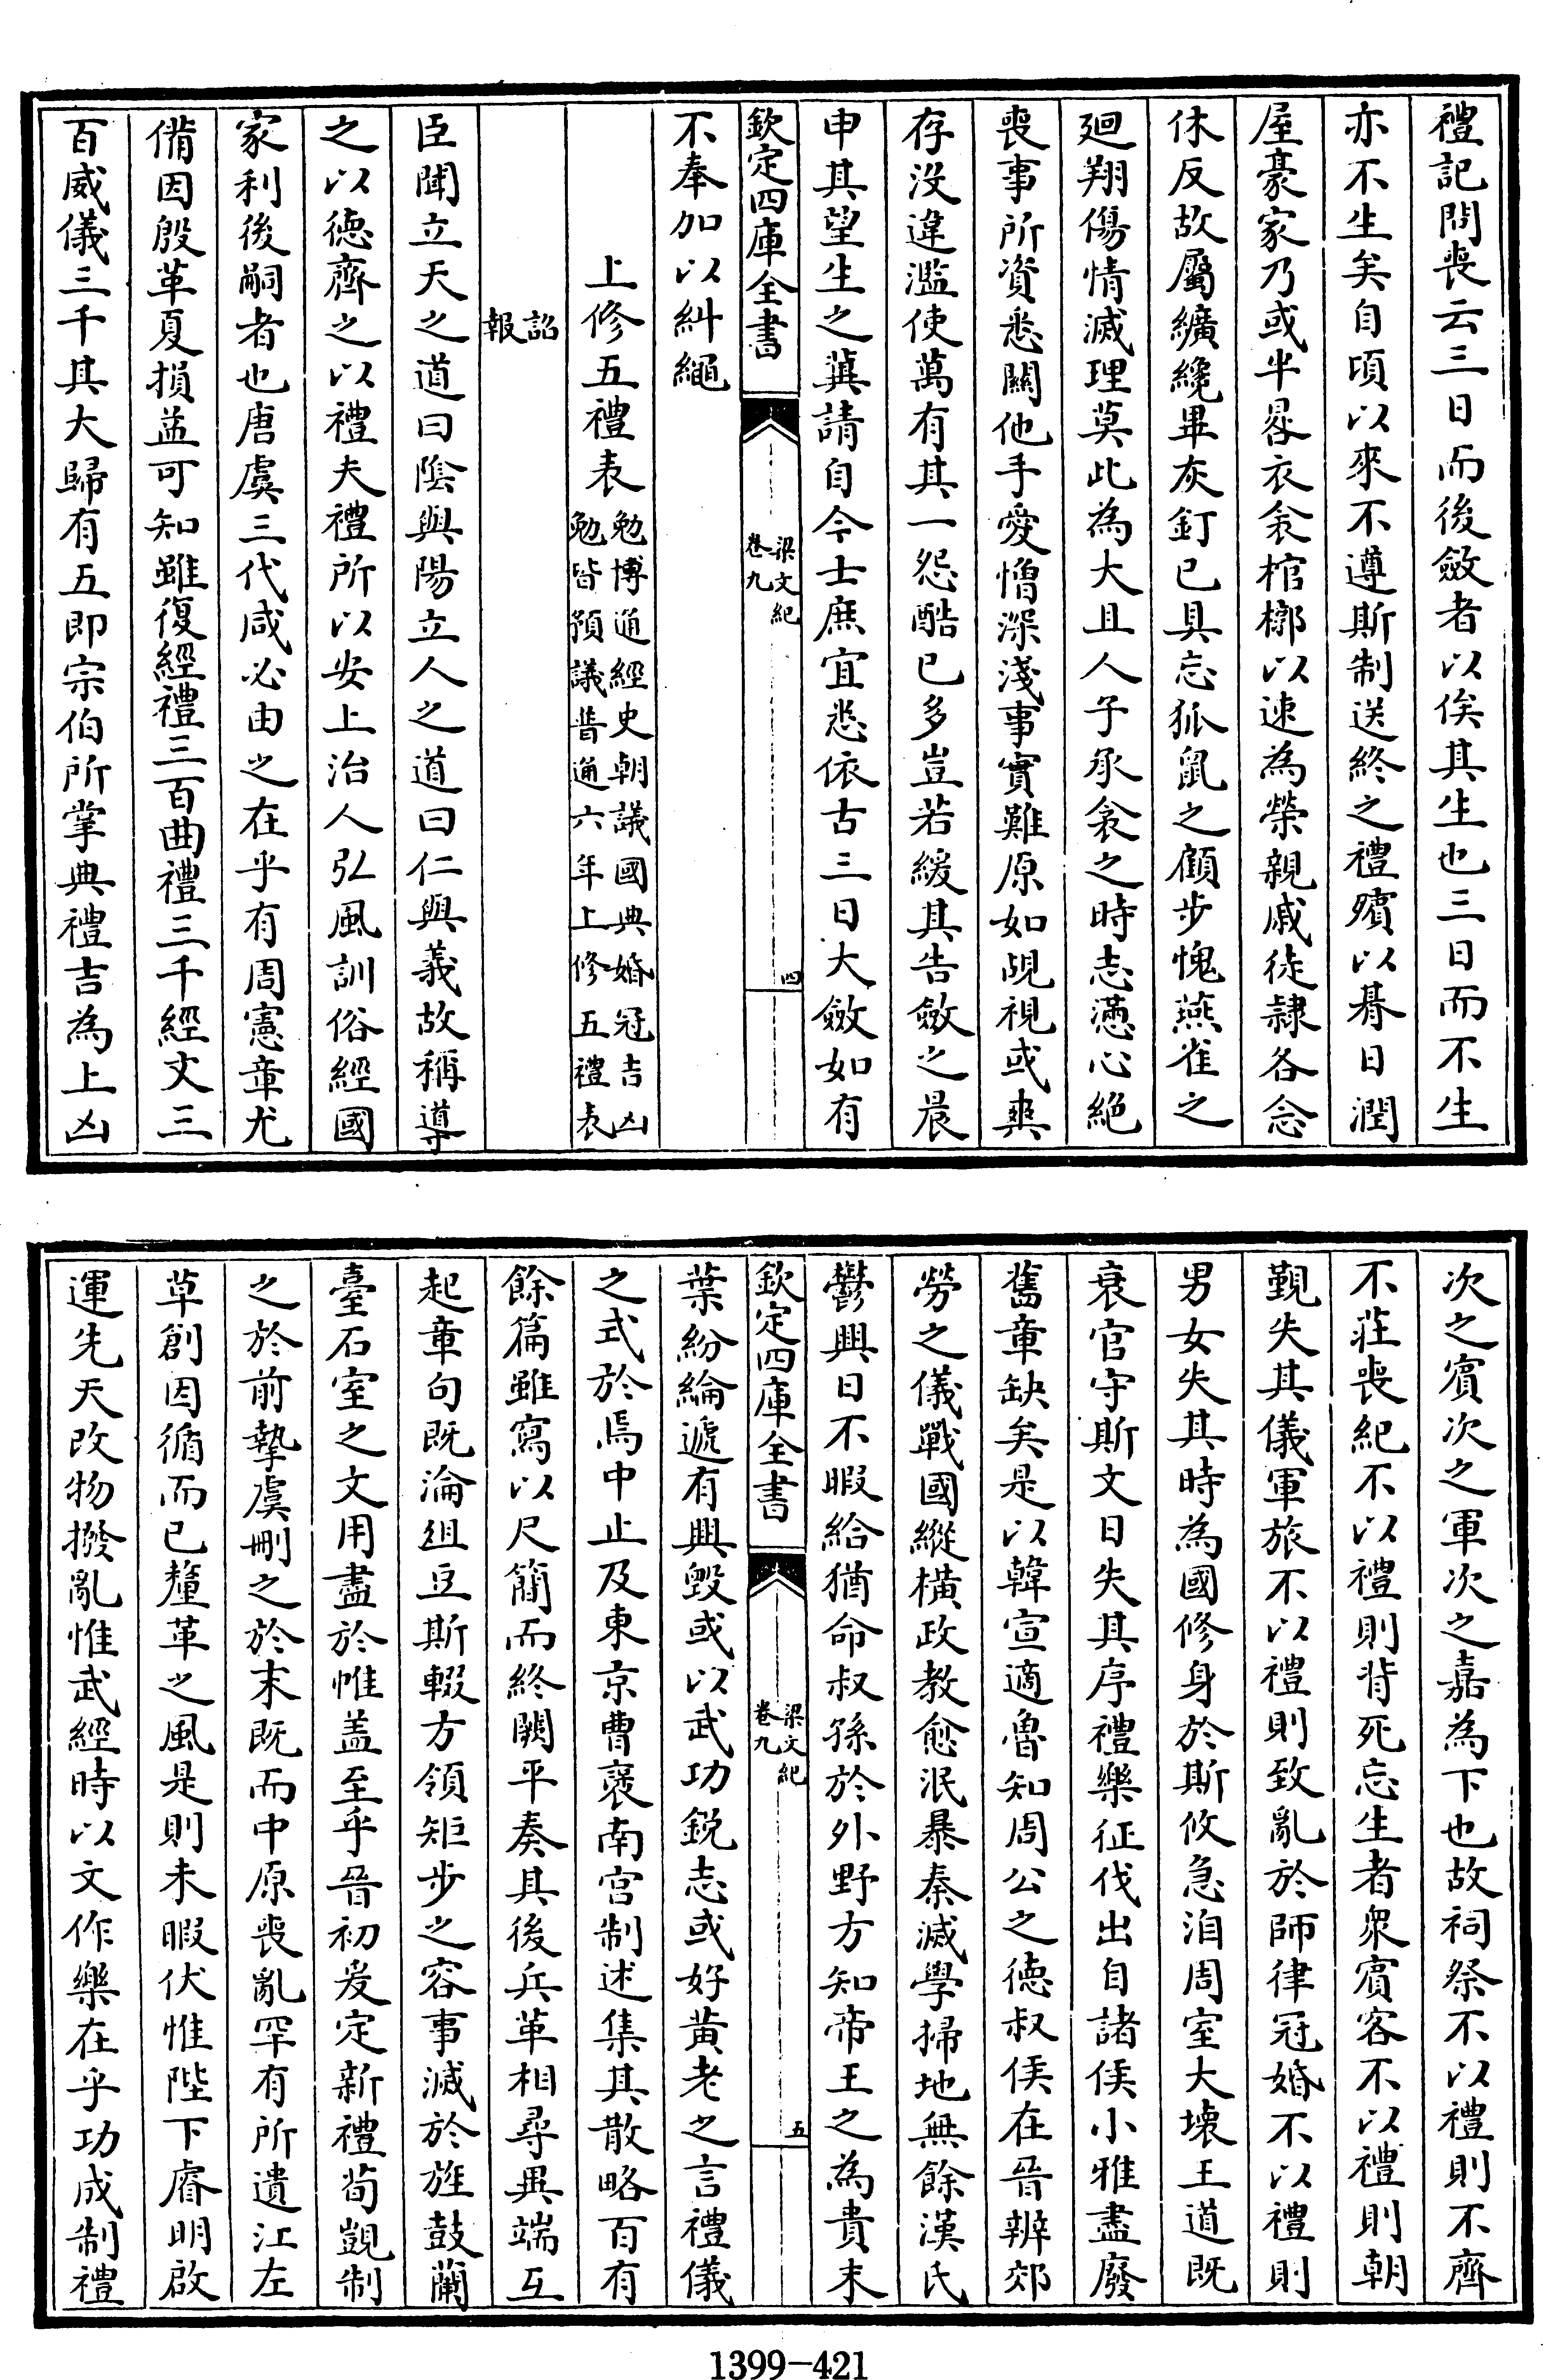 禮記問喪云三日而後斂者以俟其生也三日而不生
亦不生矣自頃以來不遵斯制送終之禮殯以朞日潤
屋豪家乃或半晷衣衾棺槨以速為榮親戚徒隸各念
休反故屬纊纔畢灰釘已具忘狐鼠之顧步愧燕雀之
廻翔傷情滅理莫此為大且人子承衾之時志懣心絶
喪事所資悉關他手愛憎深淺事實難原如覘視或爽
存没違濫使萬有其一怨酷已多豈若緩其告斂之晨
申其望生之冀請自今士庶宜悉依古三日大斂如有
欽定四庫全書
梁文紀
卷九
四
不奉加以糾繩
上修五禮表
勉博通經史朝議國典婚冠吉凶
勉皆預議普通六年上修五禮表
詔
報
臣聞立天之道曰陰與陽立人之道曰仁與義故稱導
之以德齊之以禮夫禮所以安上治人弘風訓俗經國
家利後嗣者也唐虞三代咸必由之在乎有周憲章尤
備因殷革夏損益可知雖復經禮三百曲禮三千經文三
百威儀三千其大歸有五即宗伯所掌典禮吉為上凶
次之賓次之軍次之嘉為下也故祠祭不以禮則不齊
不莊喪紀不以禮則背死忘生者衆賓客不以禮則朝
覲失其儀軍旅不以禮則致亂於師律冠婚不以禮則
男女失其時為國修身於斯攸急洎周室大壊王道既
衰官守斯文日失其序禮樂征伐出自諸侯小雅盡廢
舊章缺矣是以韓宣適魯知周公之徳叔侯在晉辨郊
勞之儀戰國縱横政教愈泯暴秦滅學掃地無餘漢氏
鬱興日不暇給猶命叔孫於外野方知帝王之為貴末
欽定四庫全書
梁文紀
卷九
五
葉紛綸遞有興毁或以武功銳志或好黄老之言禮儀
之式於焉中止及東京曹褒南宫制述集其散略百有
餘篇雖寫以尺簡而終闕平奏其後兵革相尋異端互
起章句既淪俎豆斯輟方領矩步之容事滅於旌鼓蘭
臺石室之文用盡於帷盖至乎晉初爰定新禮荀覬制
之於前摯虞刪之於末既而中原喪亂罕有所遺江左
草創因循而已釐革之風是則未暇伏惟陛下睿明啟
運先天改物撥亂惟武經時以文作樂在乎功成制禮
1399-421